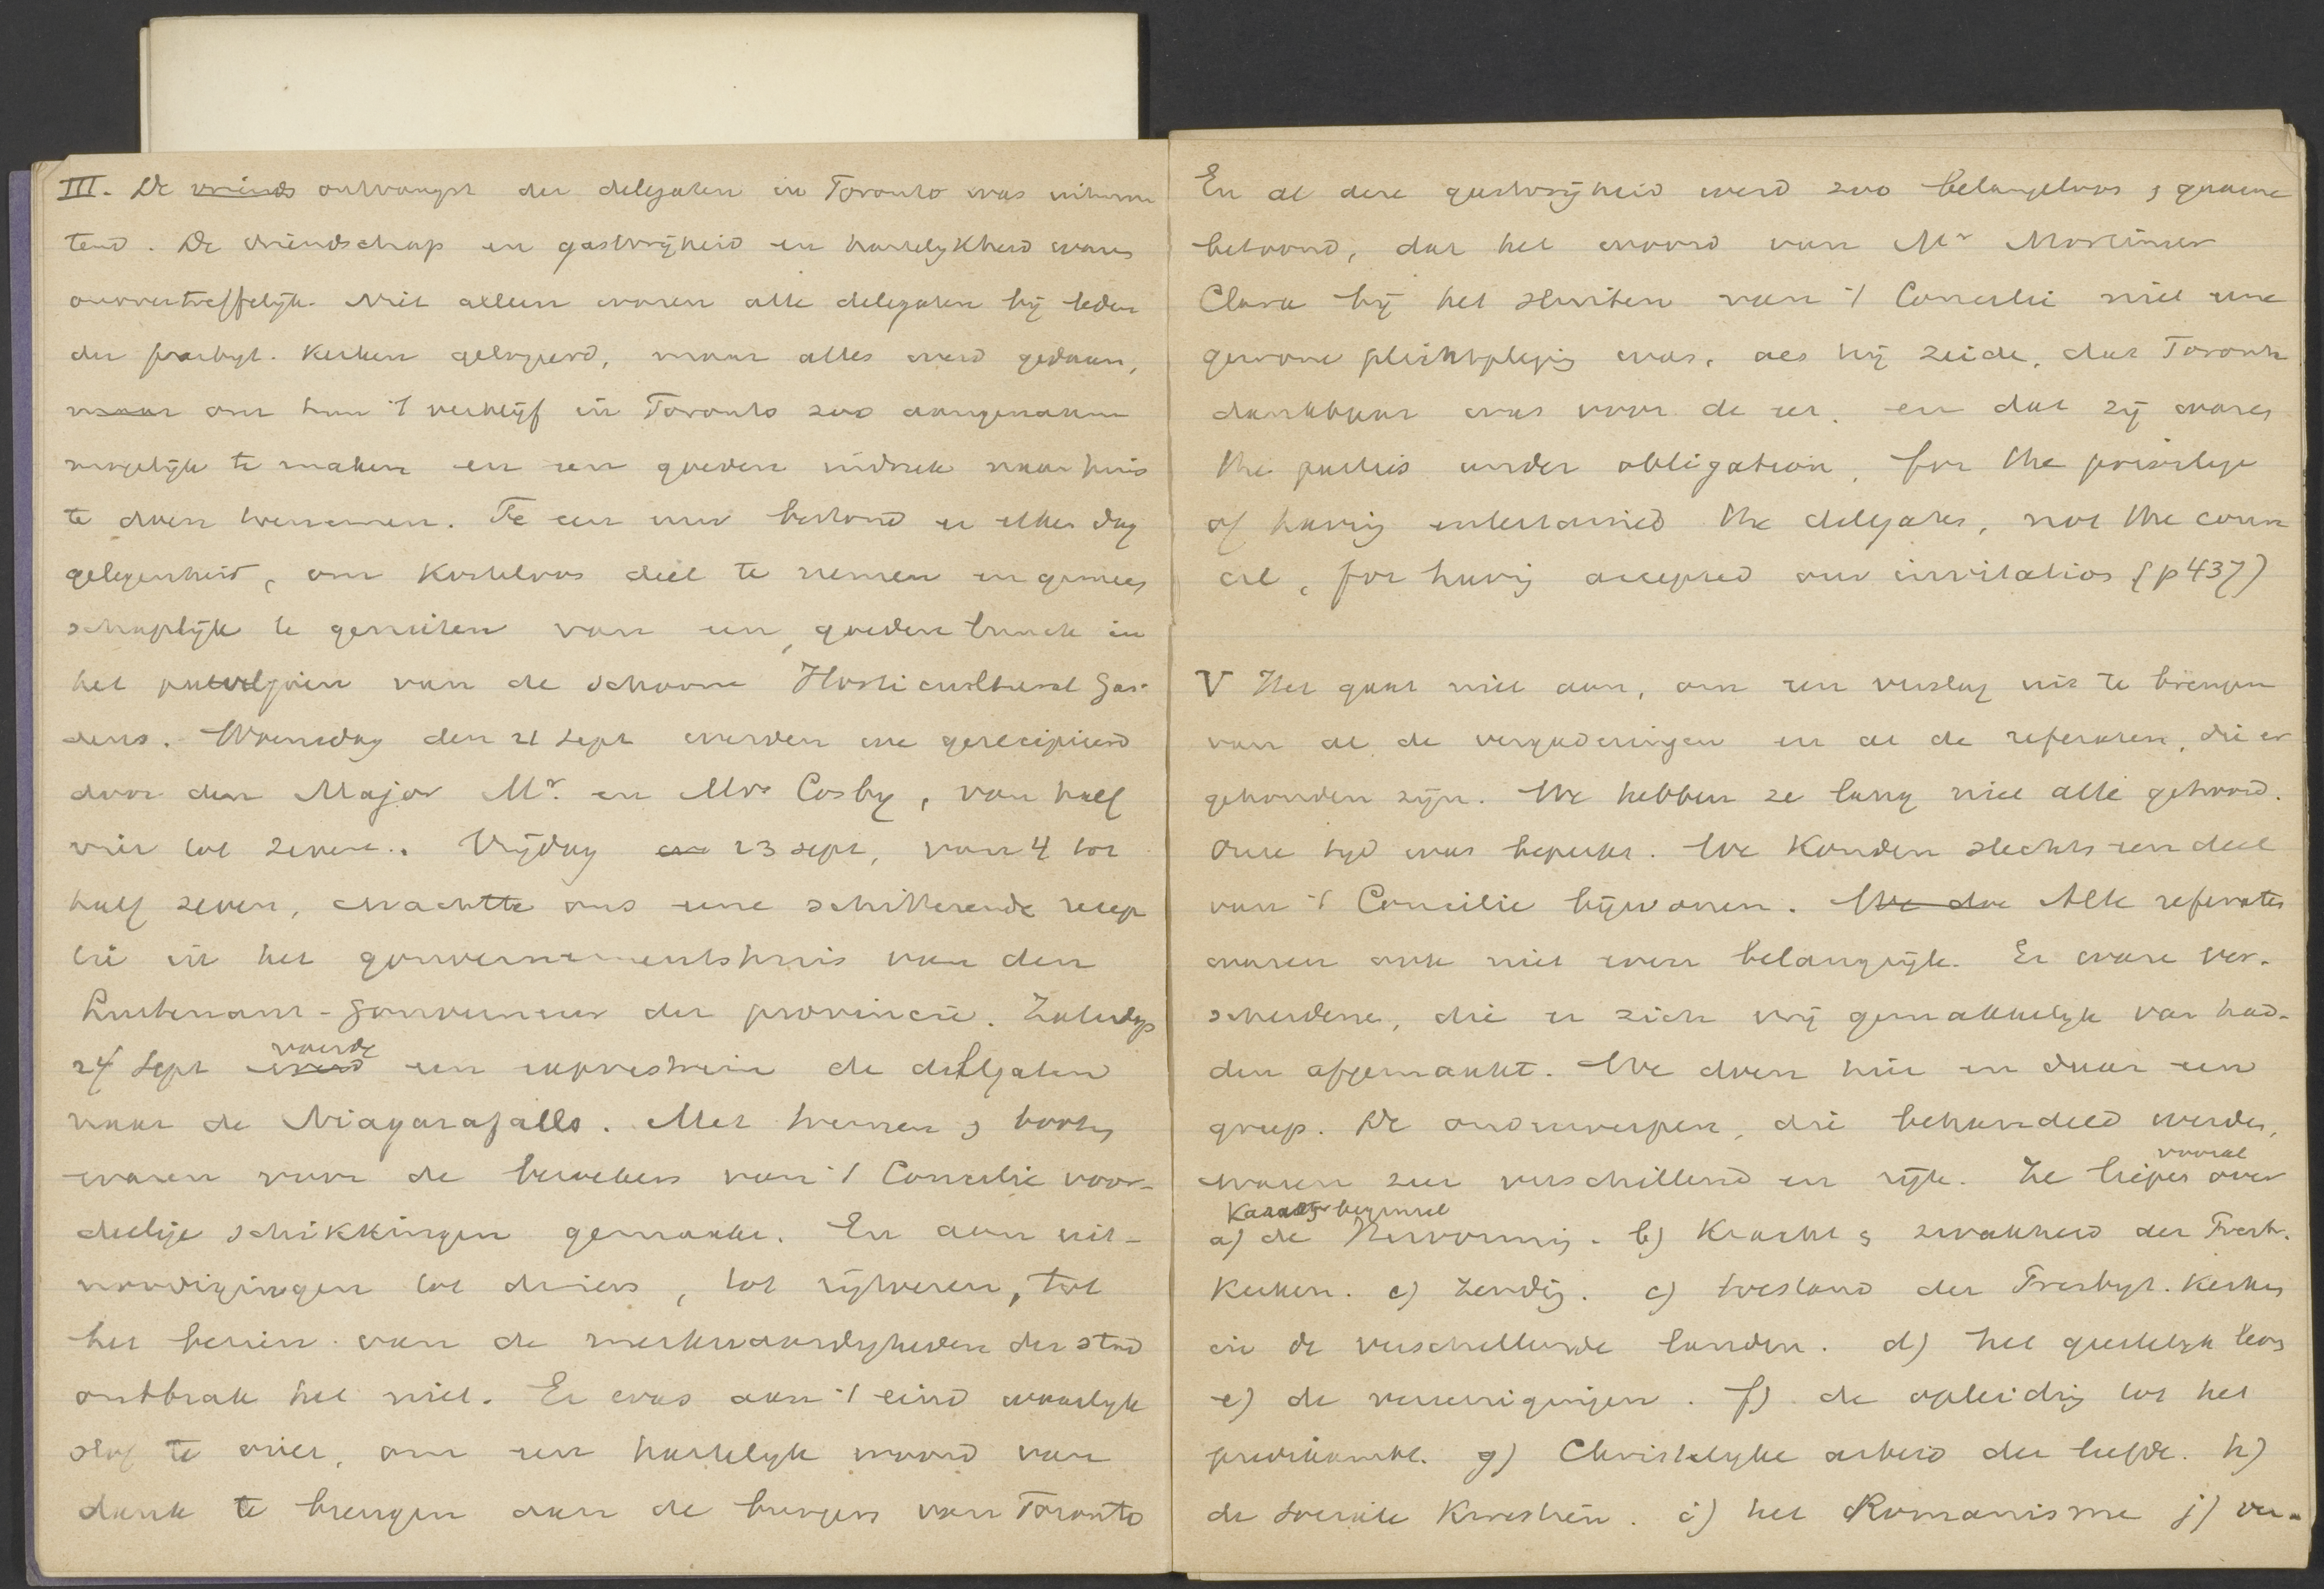 III. De vriends ontvangst der delegaten in Toronto was uitnemen
tend. De vriendschap en gastvrijheid en hartelijkheid waren
onovertreffelijk. Niet alleen waren alle delegaten bij leden
der presbyt. kerken gelogeerd, maar alles werd gedaan,
maar om hun 't verblijf in Toronto zoo aangenaam
mogelijk te maken en een goeden indruk naar huis
te doen meenemen. Te een uur bestond er elken dag
gelegenheid, om kosteloos deel te nemen en gemeen
schaplijk te genieten van een goeden lunch in
het paviljoen van de schoone Horticultural Gar-
dens. Woensdag den 21 Sept werden we gerecipieerd
door den Major Mr. en Mrs Cosby, van half
vier tot zeven. Vrijdag 23 sept, van 4 tot
half zeven, wachtte ons eene schitterende recep
tie in het gouvernementshuis van den
Luitenant-Gouverneur der provincie. Zaterdags
24 Sept werd voerde een exprestrein de delegaten
naar de Niagarafalls. Met treinen & booten
waren voor de bezoekers van 't Concilie voor-
deelige schikkingen gemaakt. En aan uit-
noodigingen tot diners, tot rijtoeren, tot
het bezien van de merkwaardigheden der stad
ontbrak het niet. Er was aan 't eind waarlijk
stof te over, om een hartelijk woord van
dank te brengen aan de burgers van Toronto
En al deze gastvrijheid werd zoo belangeloos & gaarne
betoond, dat het woord van Mr Mortimer
Clark bij het sluiten van 't Concilie niet eene
gewone plichtpleging was, als hij zeide, dat Toronto
dankbaar was voor de eer, en dat zij waren
the parties under obligation, for the privilege
of having entertained the delegates, not the coun
cil, for having accepted our invitation (p 437)
V Het gaat niet aan, om een verslag uit te brengen
van al de vergaderingen en al de referaten, die er
gehouden zijn. We hebben ze lang niet alle gehoord.
Onze tijd was beperkt. We konden slechts een deel
van 't Concilie bijwonen. We doe Alle referaten
waren ook niet even belangrijk. Er waren ver-
scheidene, die er zich vrij gemakkelijk van had-
den afgemaakt. We doen hier en daar een
greep. De onderwerpen, die behandeld werden,
waren zeer verschillend en rijk. Ze liepen vooral over
a) Karakter beginsel de Hervorming. b) Kracht & zwakheid der Presb.
Kerken. c) Zending. c) toestand der Presbyt. Kerken
in de verschillende landen. d) het geestelijk leven
e) de vereenigingen. f) de opleiding tot het
predikambt. g) Christelijke arbeid der liefde. h)
de sociale kwestien. i) het Romanisme j) ver-